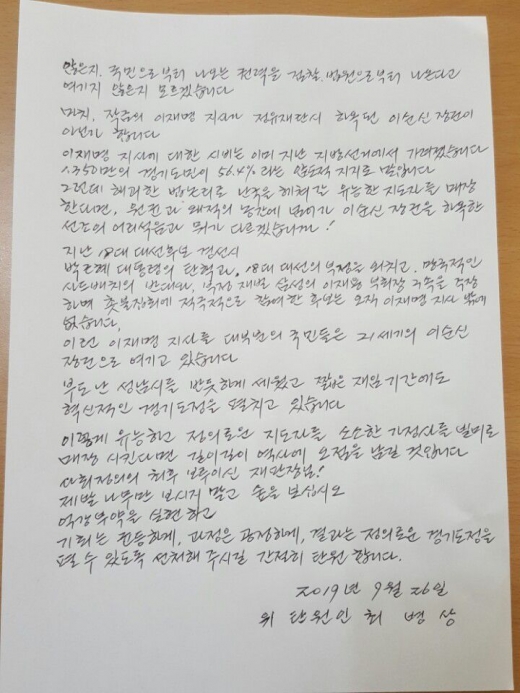 않은지. 국민으로부터 나오는 권력을 검찰, 법원으로부터 나온다고
여기지 않은지 모르겠습니다
마치, 작금의 이재명 지사가 정유재란시 하옥된 이순신 장군이
아닌가 합니다
이재명 지사에 대한 시비는 이미 지난 지방선거에서 가려졌습니다
1,350만의 경기도민이 56.4%라는 압도적 지지로 말입니다
그런데 해괴한 법논리로 난국을 헤쳐갈 유능한 지도자를 매장
한다면, 원균과 왜적의 농간에 넘어가 이순신 장군을 하옥한
선조의 어리석음과 뭐가 다르겠습니까!
지난 18대 대선후보 경선시
박근혜 대통령의 탄핵과, 18대 대선의 부정을 외치고, 망국적인
사드배치의 반대와, 부정 재벌 삼성의 이재용 부회장 구속을 주장
하며 촛불집회에 적극적으로 참여한 후보는 오직 이재명 지사 밖에
없습니다.
이런 이재명 지사를 대부분의 국민들은 21세기의 이순신
장군으로 여기고 있습니다
부도난 성남시를 반듯하게 세웠고 짧은 재임기간에도
혁신적인 경기도정을 펼치고 있습니다
이렇게 유능하고 정의로운 지도자를 소소한 가정사를 빌미로
매장 시킨다면 길이길이 역사에 오점을 남길 것입니다
사회정의의 최후 보루이신 재판장님!
제발 나무만 보시지 말고 숲을 보십시오
억강부약을 실현하고
기회는 균등하게, 과정은 공정하게, 결과는 정의로운 경기도정을
펼 수 있도록 선처해 주시길 간절히 탄원 합니다.
2019년 9월 26일
위 탄원인 최 병 상